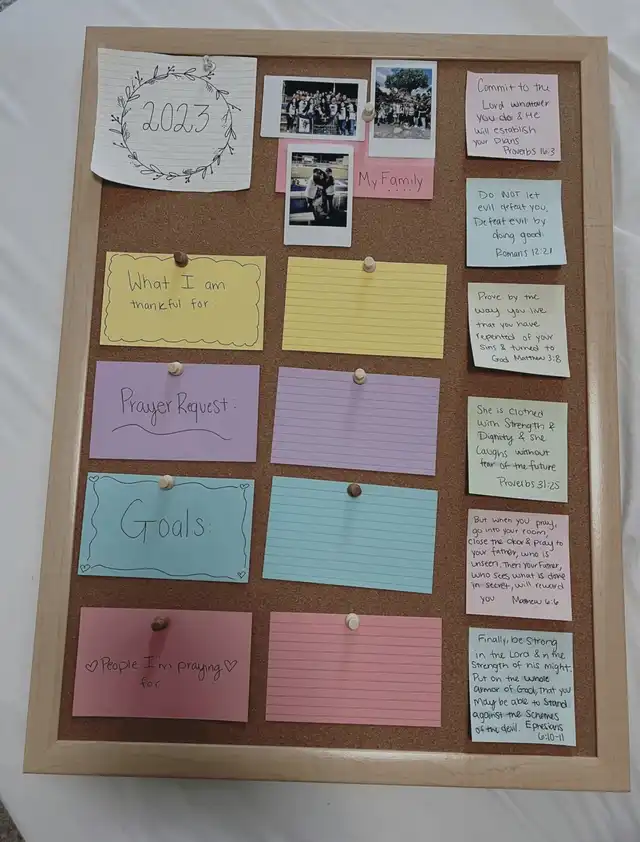 2023
My Family
....
What I am
thankful for
Prayer Request.
Goals.
♡People I'm praying♡
for
Commit to the
Lord whatever
you do & He
will establish
your plans
Proverbs 16:3
Do NOT let
evil defeat you,
Defeat evil by
doing good.
Romans 12:21
Prove by the
way you live
that you have
repented of your
sins & turned to
God Matthew 3:8
She is clothed
with Strength &
Dignity & She
Laughs without
fear of the future
Proverbs 31:25
But when you pray,
go into your room,
close the door & pray to
your father, who is
unseen, Then your Father,
who sees, what is done
in secret, will reward
you Matthew 6:6
Finally, be strong
in the Lord & in the
Strength of his might.
Put on the whole
armor of God, that you
May be able to stand
against the schemes
of the devil. Ephesians
6:10-11